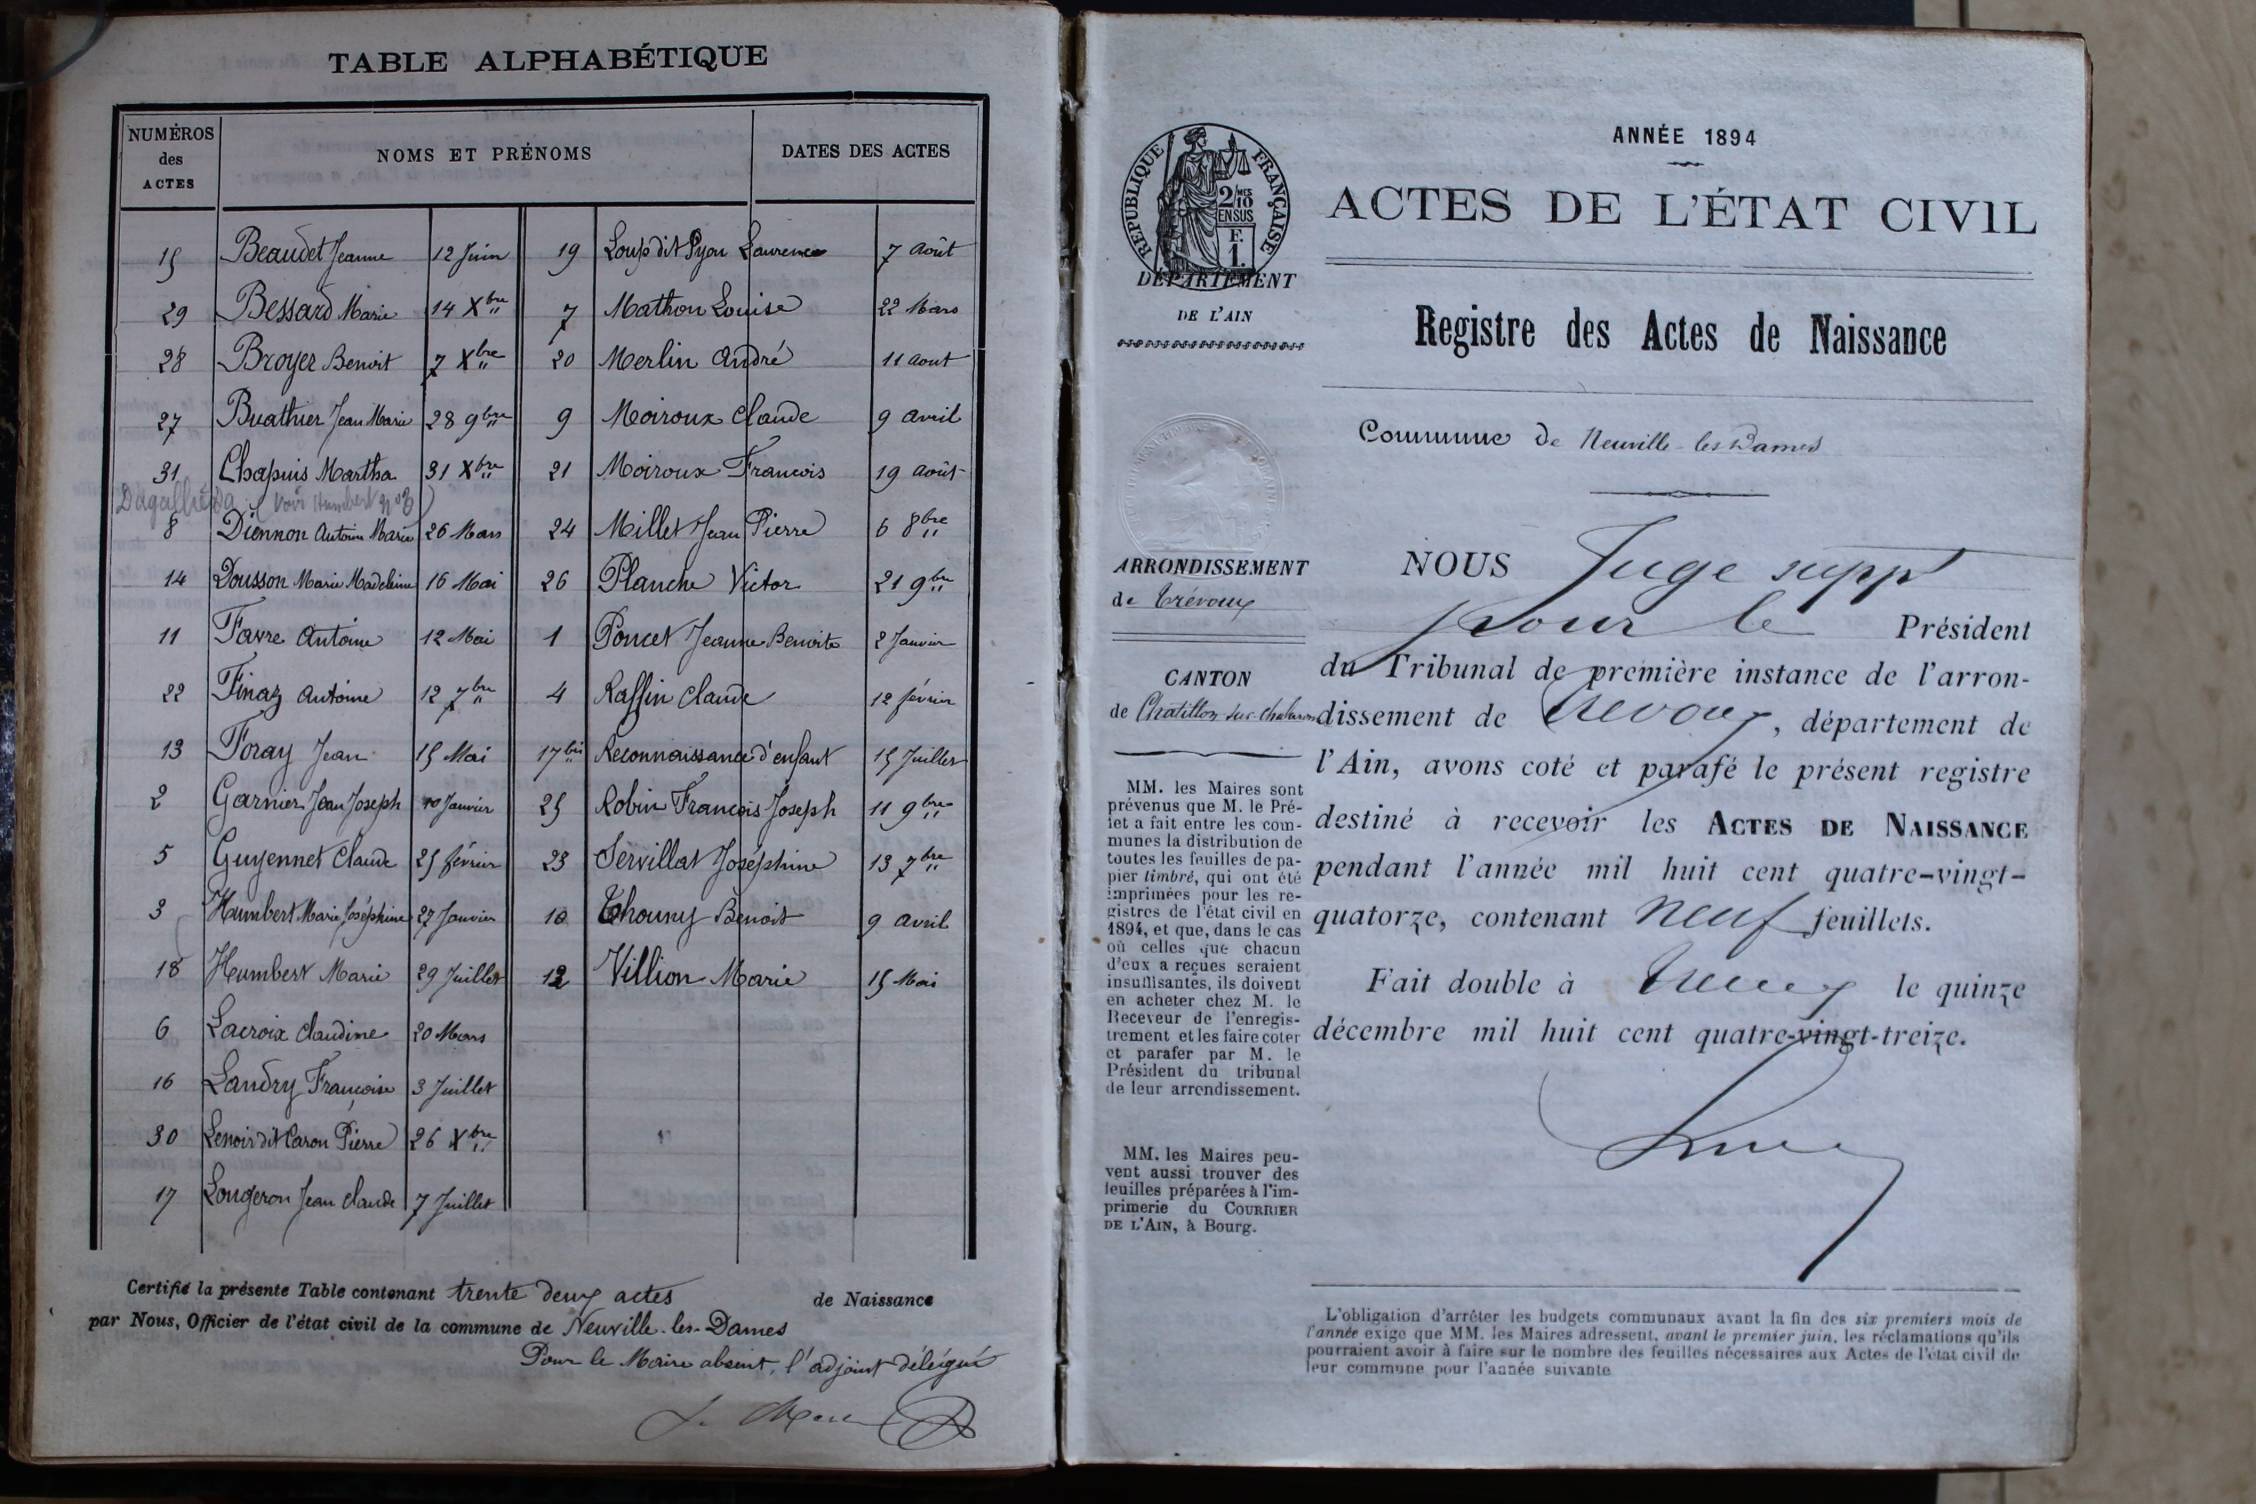 TABLE ALPHABÉTIQUE
NUMÉROS des ACTES
NOMS ET PRÉNOMS
DATES DES ACTES
15 Beaudet Jeanne 12 Juin
29 Bessard Marie 14 Xbre
28 Broyer Benoit 7 Xbre
27 Buathier Jean Marie 28 9bre
31 Chapuis Martha 31 Xbre
(voir Humbert N°3)
8 Diennon Antoine Marie 26 Mars
14 Dousson Marie Madeleine 16 Mai
11 Favre Antoine 12 Mai
22 Finaz Antoine 12 7bre
13 Foray Jean 15 Mai
2 Garnier Jean Joseph 10 Janvier
5 Guyennet Claude 25 février
3 Humbert Marie Joséphine 27 Janvier
18 Humbert Marie 29 Juillet
6 Lacroix Claudine 20 Mars
16 Landry Françoise 3 Juillet
30 Lenoir dit Caron Pierre 26 Xbre
17 Longeron Jean Claude 7 Juillet
19 Loup dit Pyon Laurence 7 Août
7 Mathon Louise 22 Mars
20 Merlin André 11 Aout
9 Moiroux Claude 9 avril
21 Moiroux Francois 19 Août
24 Millet Jean Pierre 6 8bre
26 Planche Victor 21 9bre
1 Poncet Jeanne Benoite 2 Janvier
4 Raffin Claude 12 février
17bis Reconnaissance d'enfant 15 Juillet
25 Robin Francois Joseph 11 9bre
23 Servillat Joséphine 13 7bre
10 Thouny Benoit 9 avril
12 Villion Marie 15 Mai
Certifié la présente Table contenant trente deux actes de Naissance
par Nous, Officier de l'état civil de la commune de Neuville-les-Dames
Pour le Maire absent, l'adjoint délégué
RÉPUBLIQUE FRANÇAISE
2/10MES
EN SUS
F.
1.
DÉPARTEMENT
DE L'AIN
ARRONDISSEMENT
de Trévoux
CANTON
de Chatillon sur Chalaronne
MM. les Maires sont
prévenus que M. le Pré-
fet a fait entre les com-
munes la distribution de
toutes les feuilles de pa-
pier timbré, qui ont été
imprimées pour les re-
gistres de l'état civil en
1894, et que, dans le cas
où celles que chacun
d'eux a reçues seraient
insuffisantes, ils doivent
en acheter chez M. le
Receveur de l'enregis-
trement et les faire coter
et parafer par M. le
Président du tribunal
de leur arrondissement.
MM. les Maires peu-
vent aussi trouver des
feuilles préparées à l'im-
primerie du COURRIER
DE L'AIN, à Bourg.
ANNÉE 1894
ACTES DE L'ÉTAT CIVIL
Registre des Actes de Naissance
Commune de Neuville-les-Dames
NOUS Juge suppt
pour le Président
du Tribunal de première instance de l'arron-
dissement de Trévoux, département de
l'Ain, avons coté et parafé le présent registre
destiné à recevoir les ACTES DE NAISSANCE
pendant l'année mil huit cent quatre-vingt-
quatorze, contenant neuf feuillets.
Fait double à Trévoux le quinze
décembre mil huit cent quatre-vingt-treize.
L'obligation d'arrêter les budgets communaux avant la fin des six premiers mois de
l'année exige que MM. les Maires adressent, avant le premier juin, les réclamations qu'ils
pourraient avoir à faire sur le nombre des feuilles nécessaires aux Actes de l'état civil de
leur commune pour l'année suivante